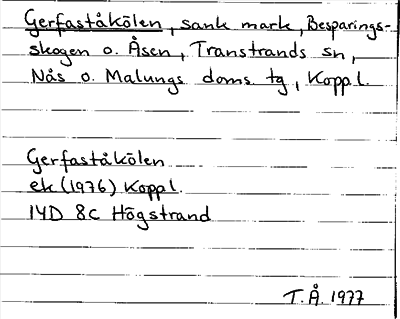 Gerfaståkölen, sank mark, Besparings-
skogen o. Åsen, Transtrands sn,
Nås o. Malungs doms tg, Koppl.
Gerfaståkölen
ek (1976) Koppl.
14D 8c Högstrand
T.Å. 1977